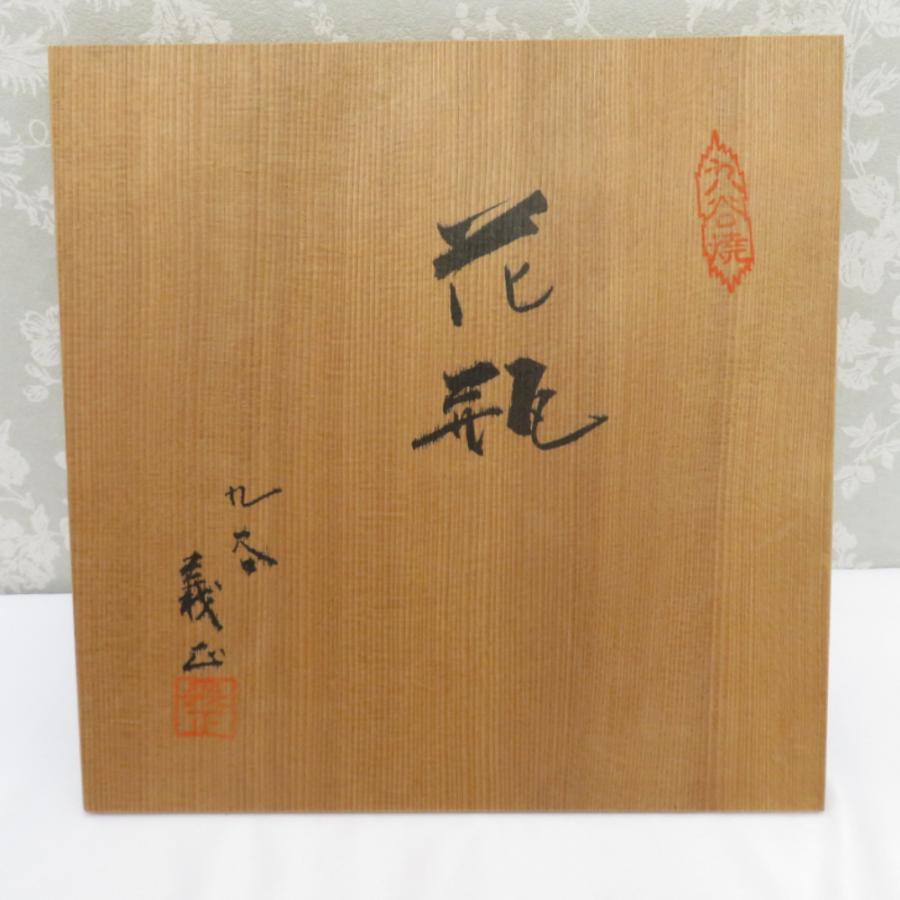 九谷焼
花瓶
九谷
義正